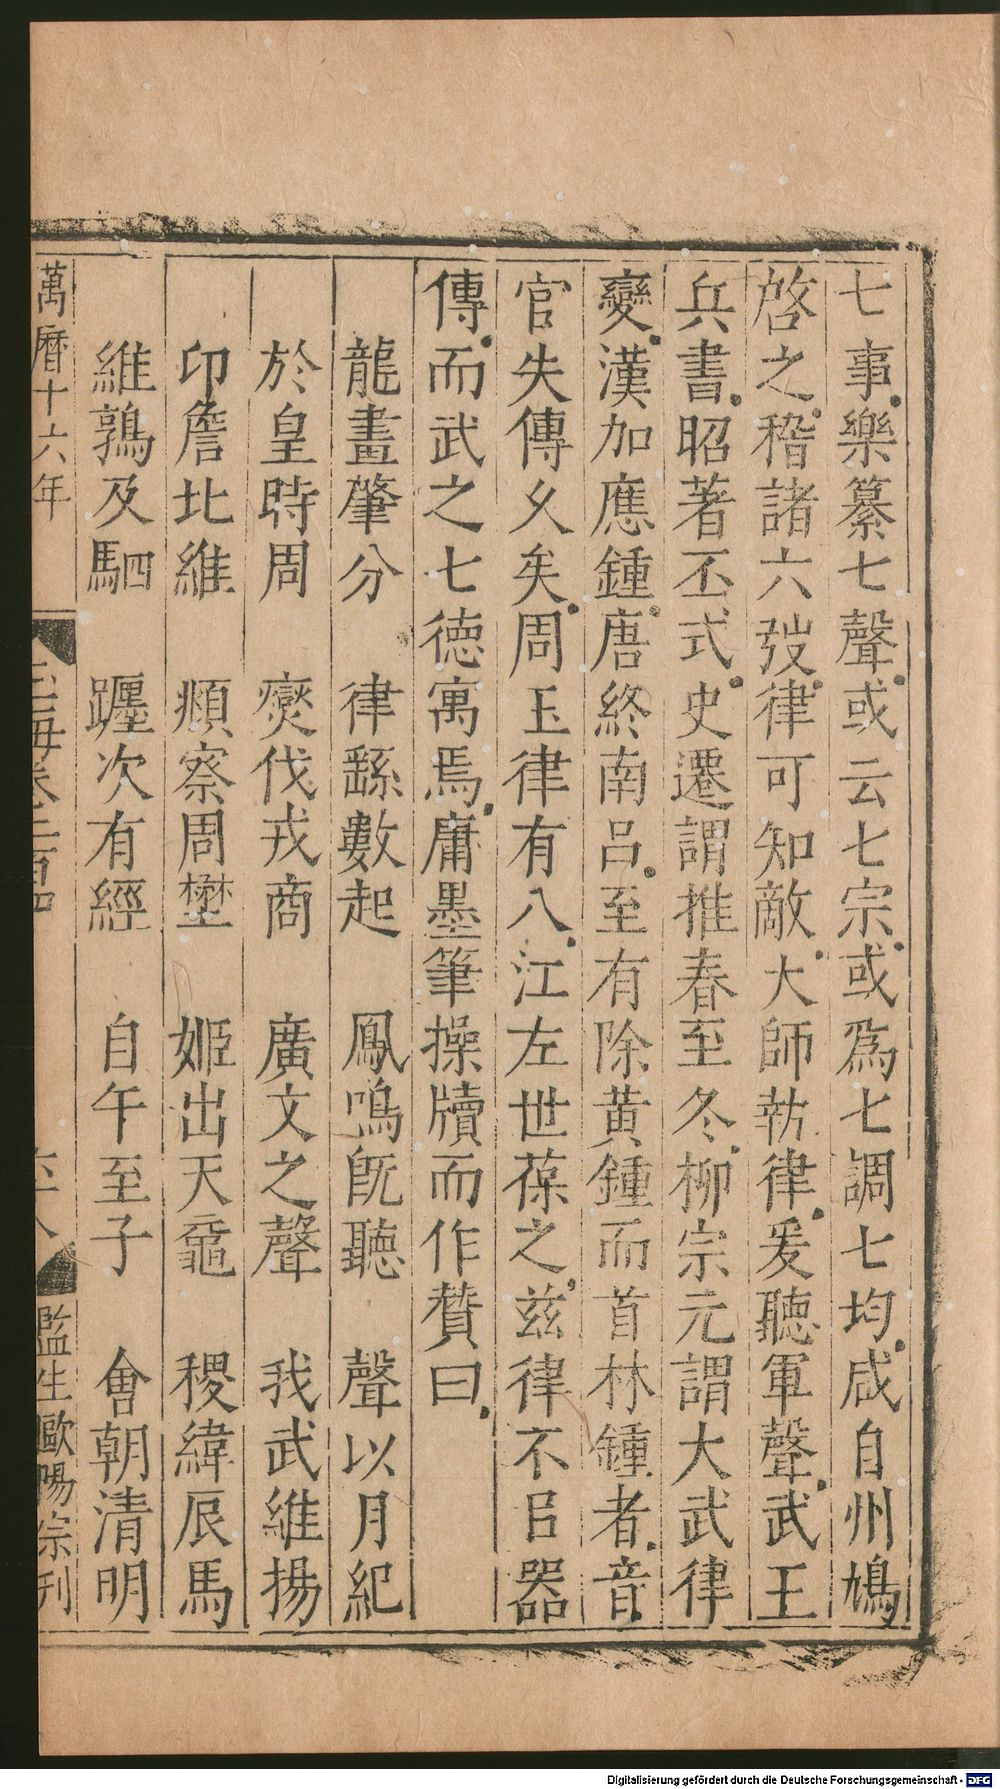 七事樂纂七聲或云七宗或爲七調七均咸自州鳩
啓之稽諸六弢律可知敵大師執律爰聽軍聲武王
兵書昭著丕式史遷謂推春至冬柳宗元謂大武律
變漢加應鍾唐終南呂至有除黃鍾而首林鍾者音
官失傳久矣周玉律有八江左世葆之兹律不㠯器
傳而武之七德寓焉庸墨筆操牘而作贊曰
龍畫肇分　律繇數起　鳳鳴旣聽　聲以月紀
於皇時周　燮伐戎商　廣文之聲　我武維揚
卬詹比維　頫察周壄　姬出天黿　稷緯辰馬
維鶉及駟　躔次有經　自午至子　會朝清明
萬曆十六年　玉海卷二百四　六十八　監生歐陽宗刊
Digitalisierung gefördert durch die Deutsche Forschungsgemeinschaft - DFG